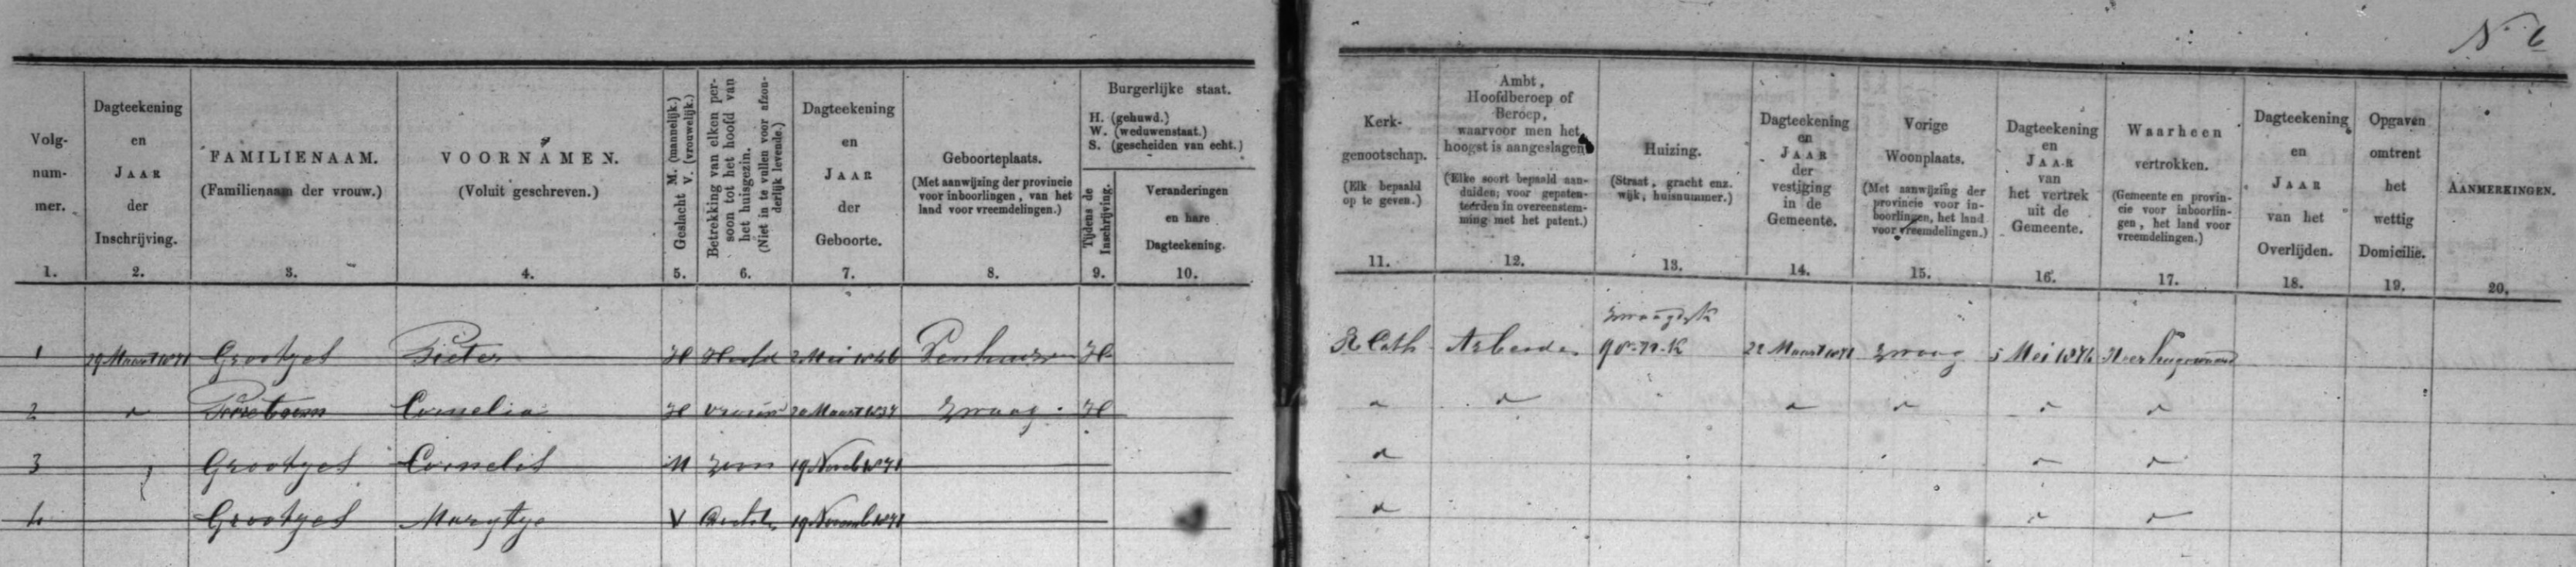 N. 6
Volg-
num-
mer.
1.
Dagteekening
en
JAAR
der
Inschrijving.
2.
FAMILIENAAM.
(Familienaam der vrouw.)
3.
VOORNAMEN.
(Voluit geschreven.)
4.
Geslacht M. (mannelijk.)
V. (vrouwelijk.)
5.
Betrekking van elken per-
soon tot het hoofd van
het huisgezin.
(Niet in te vullen voor afzon-
derlijk levende.)
6.
Dagteekening
en
JAAR
der
Geboorte.
7.
Geboorteplaats.
(Met aanwijzing der provincie
voor inboorlingen, van het
land voor vreemdelingen.)
8.
Burgerlijke staat.
H. (gehuwd.)
W. (weduwenstaat.)
S. (gescheiden van echt.)
Tijdens de
Inschrijving.
9.
Veranderingen
en hare
Dagteekening.
10.
Kerk-
genootschap.
(Elk bepaald
op te geven.)
11.
Ambt,
Hoofdberoep of
Beroep,
waarvoor men het
hoogst is aangeslagen
(Elke soort bepaald aan-
duiden; voor gepaten-
teerden in overeenstem-
ming met het patent.)
12.
Huizing.
(Straat, gracht enz.
wijk, huisnummer.)
13.
Dagteekening
en
JAAR
der
vestiging
in de
Gemeente.
14.
Vorige
Woonplaats.
(Met aanwijzing der
provincie voor in-
boorlingen, het land
voor vreemdelingen.)
15.
Dagteekening
en
JAAR
van
het vertrek
uit de
Gemeente.
16.
Waarheen
vertrokken.
(Gemeente en provin-
cie voor inboorlin-
gen, het land voor
vreemdelingen.)
17.
Dagteekening
en
JAAR
van het
Overlijden.
18.
Opgaven
omtrent
het
wettig
Domicilie.
19.
AANMERKINGEN.
20.
Zwaagdijk
1 29 Maart 1871 Grootjes Pieter H Hoofd 2 Mei 1846 H R Cath Arbeider 22 Maart 1871 Zwaag 5 Mei 1876 Heerhugowaard
2 " Cornelia H vrouw Zwaag H " " " " " "
3 Grootjes Cornelis M zoon 19 Novemb 1871 " " "
4 Grootjes Marytje V Dochter 19 Novemb 1871 " " "